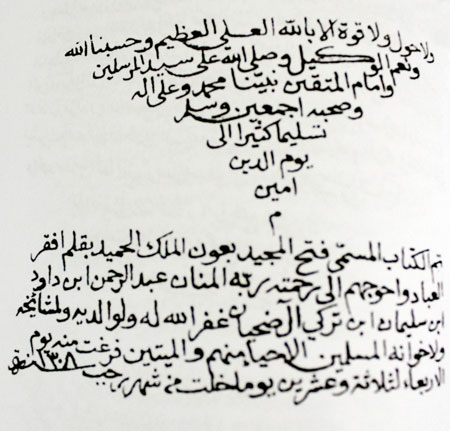 ولاحول ولا قوة الا بالله العلي العظيم وحسبنا الله
ونعم الوكيل وصلى الله على سيد المرسلين
وامام المتقين نبينا محمد وعلى اله
وصحبه اجمعين وسلم
تسليما كثيرا الى
يوم الدين
امين
م
تم الكتاب المسمى فتح المجيد بعون الملك الحميد بقلم افقر
العباد واحوجهم الى رحمة ربه المنان عبد الرحمن ابن داود
ابن سليمان ابن تركي آل ضحيان غفر الله له ولوالديه ولمشائخه
ولاخوانه المسلمين الاحياء منهم والميتين فرغت منه يوم
الاربعاء لثلاثة وعشرين يوم ملخلت من شهر رجب ١٣٠٨